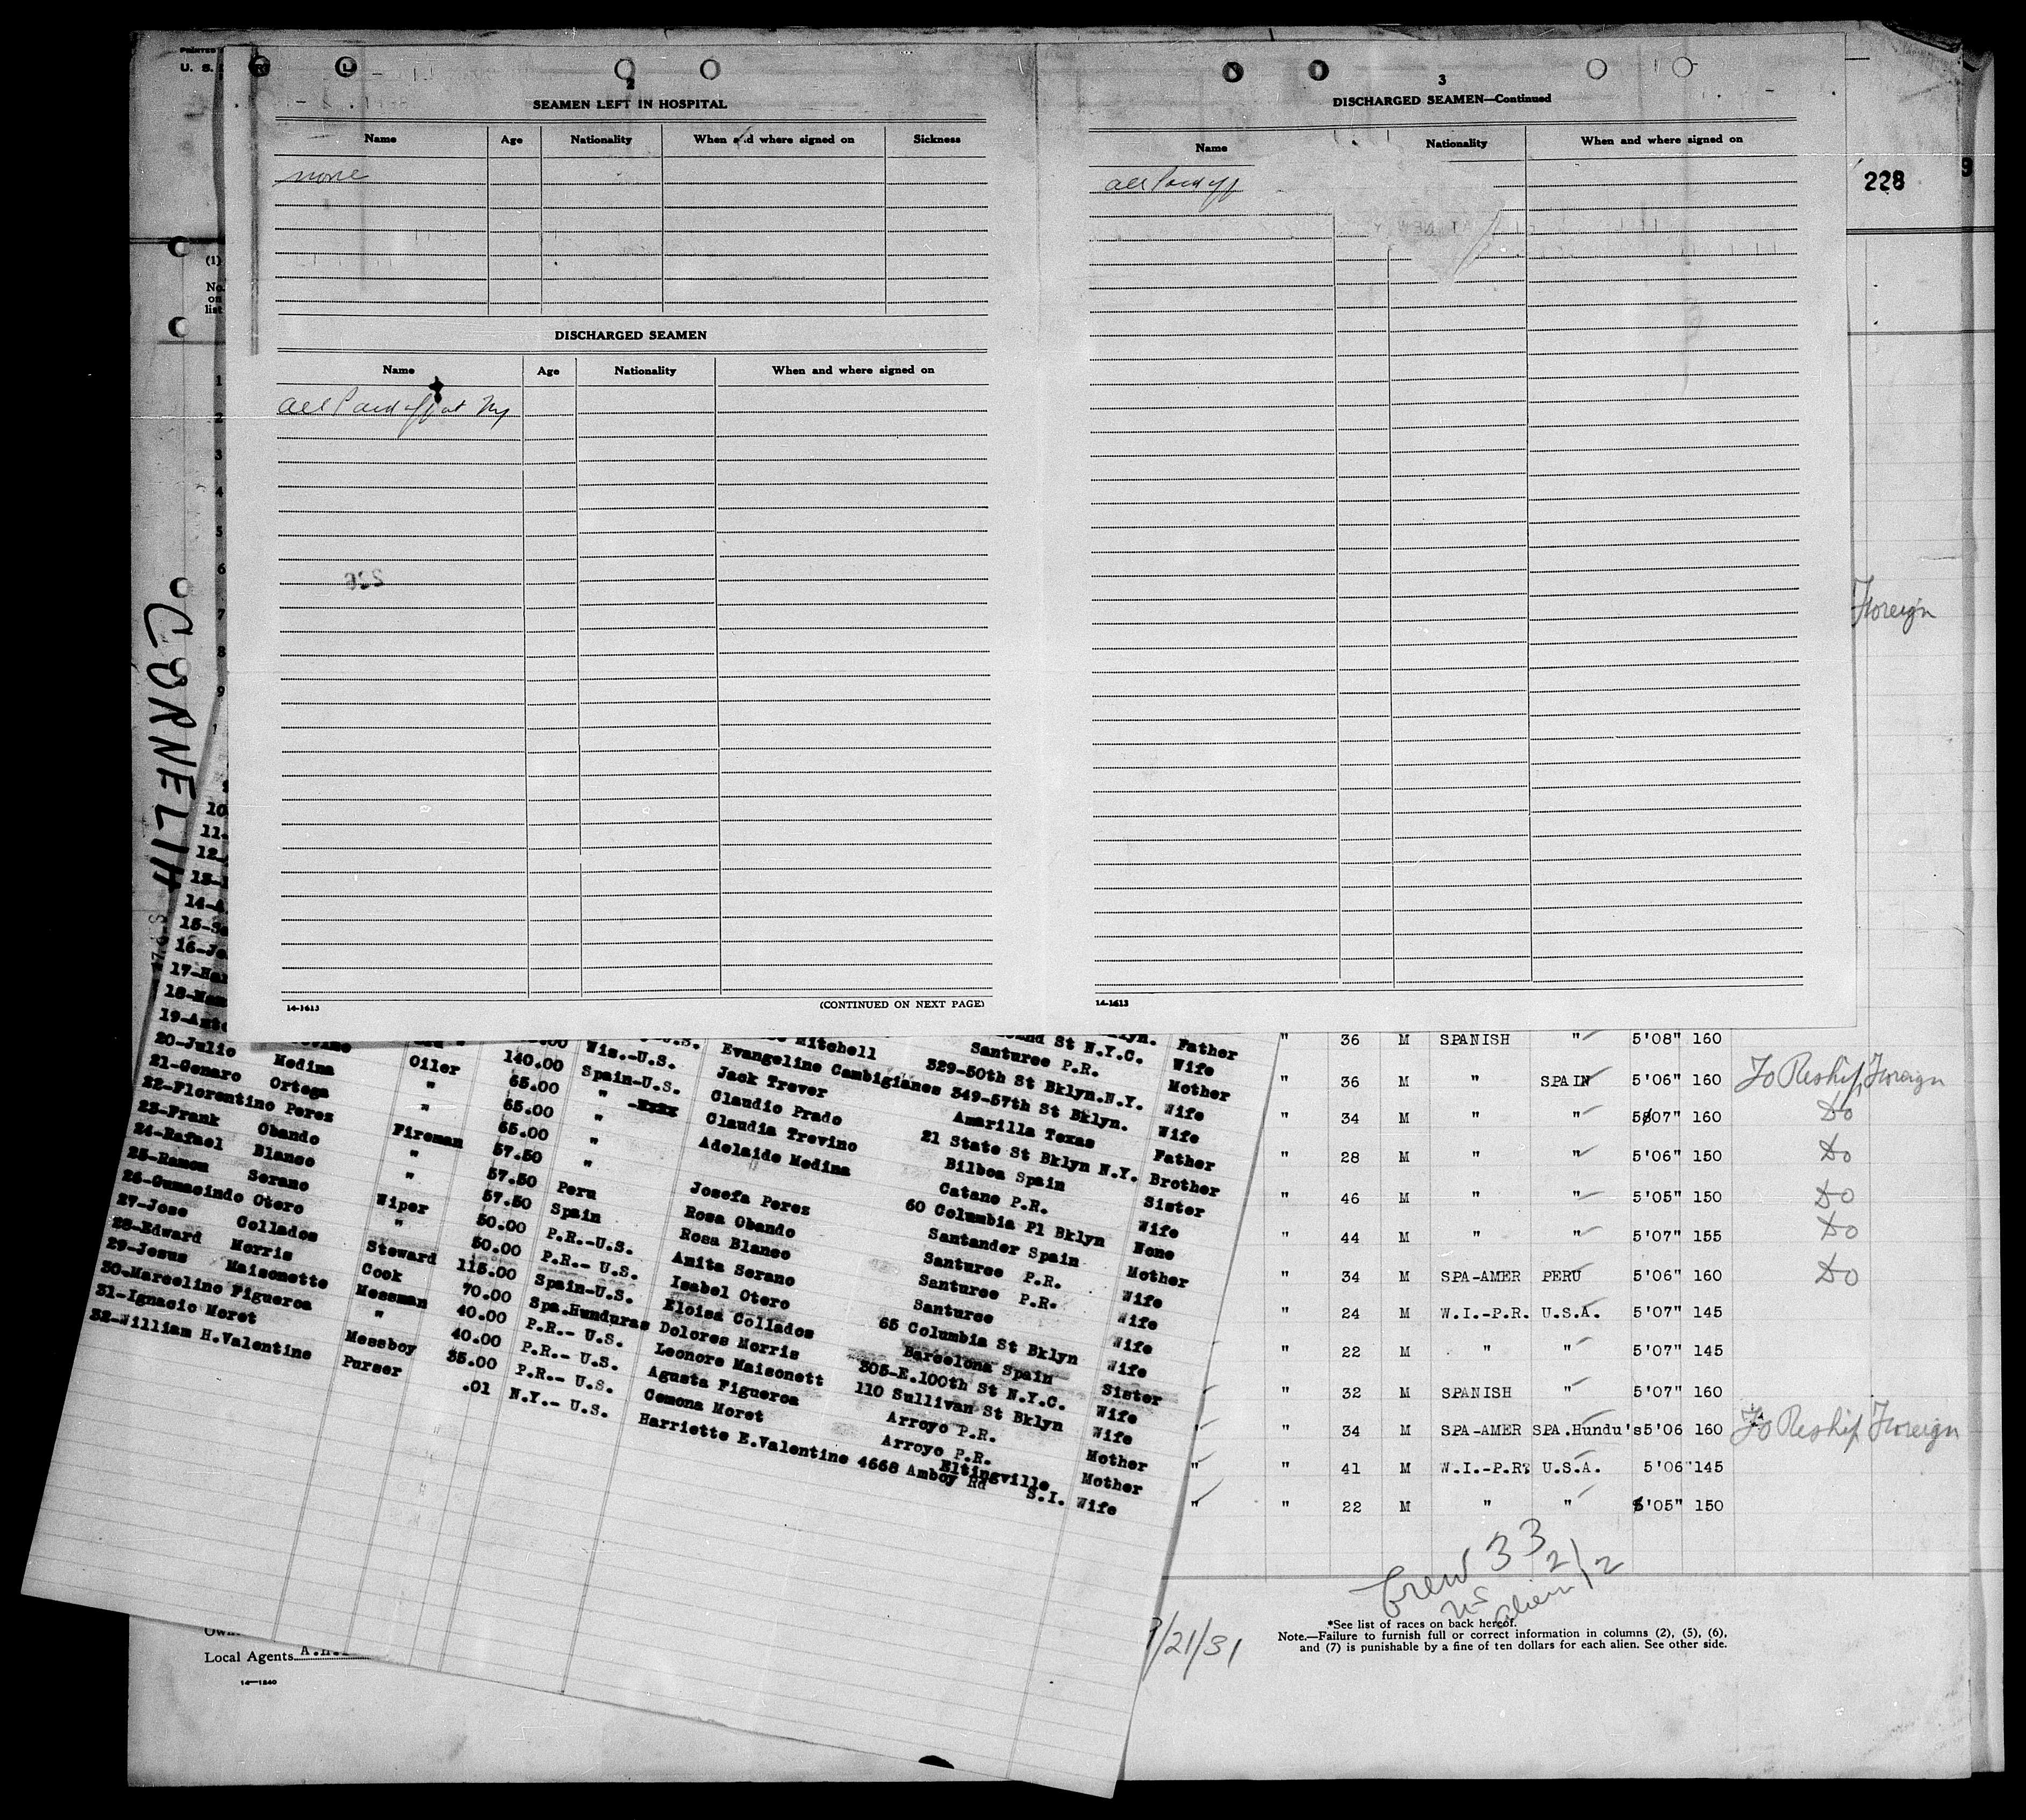 PRINTED
U. S.
2
SEAMEN LEFT IN HOSPITAL
Name Age Nationality When and where signed on Sickness
none
DISCHARGED SEAMEN
Name Age Nationality When and where signed on
all Paid off at Ny
226
14-1613
(CONTINUED ON NEXT PAGE)
3
DISCHARGED SEAMEN—Continued
Name Nationality When and where signed on
all Paid off
14-1613
228
9
(1)
No.
on
list
1
2
3
4
5
6
7
8
9
CORNELIA
Foreign
10
11-
12-
13-
14-A
15-Se
16-Jo
17-Har
18-Man
19-Anto
20-Julio Medina
21-Genaro Ortega
22-Florentino Perez
23-Frank Obando
24-Rafael Blanco
25-Ramon Serano
26-Gumacindo Otero
27-Jose Collados
28-Edward Morris
29-Jesus Maisonette
30-Marcelino Figueroa
31-Ignacio Moret
32-William H.Valentine
Oiler
"
"
Fireman
"
"
Wiper
"
Steward
Cook
Messman
"
Messboy
Purser
140.00
65.00
65.00
65.00
57.50
57.50
57.50
50.00
50.00
115.00
70.00
40.00
40.00
35.00
.01
Wis.-U.S.
Spain-U.S.
" -xxxx
"
"
Peru
Spain
P.R.-U.S.
P.R.- U.S.
Spain-U.S.
Spa.Hunduras
P.R.- U.S.
P.R.- U.S.
P.R.- U.S.
N.Y.- U.S.
Mitchell
Evangeline Cambigianes
Jack Trever
Claudio Prado
Claudia Trevino
Adelaide Medina
Josefa Perez
Rosa Obando
Rosa Blanco
Anita Serano
Isabel Otero
Eloisa Collados
Dolores Morris
Leonore Maisonett
Agusta Figueroa
Cemona Moret
Harriette E.Valentine
St N.Y.C.
Santurce P.R.
329-50th St Bklyn.N.Y.
349-57th St Bklyn.
Amarilla Texas
21 State St Bklyn N.Y.
Bilboa Spain
Catano P.R.
60 Columbia Pl Bklyn
Santander Spain
Santurce P.R.
Santurce P.R.
Santurce
65 Columbia St Bklyn
Barcelona Spain
305-E.100th St N.Y.C.
110 Sullivan St Bklyn
Arroyo P.R.
Arroyo P.R.
Eltingville
4668 Amboy Rd S.I.
Father
Wife
Mother
Wife
Wife
Father
Brother
Sister
Wife
None
Mother
Wife
Wife
Wife
Wife
Sister
Wife
Wife
Mother
Mother
Wife
" 36 M SPANISH " 5'08" 160
" 36 M " SPAIN 5'06" 160 To Reship Foreign
" 34 M " " 5'07" 160 Do
" 28 M " " 5'06" 150 Do
" 46 M " " 5'05" 150 Do
" 44 M " " 5'07" 155 Do
" 34 M SPA-AMER PERU 5'06" 160 Do
" 24 M W.I.-P.R. U.S.A. 5'07" 145
" 22 M " " 5'07" 145
" 32 M SPANISH " 5'07" 160
" 34 M SPA-AMER SPA.Hundu's 5'06 160 To Reship Foreign
" " 41 M W.I.-P.R. U.S.A. 5'06" 145
" " 22 M " " 5'05" 150
Crew 33
US 21
alien 12
/21/31
*See list of races on back hereof.
Note.—Failure to furnish full or correct information in columns (2), (5), (6),
and (7) is punishable by a fine of ten dollars for each alien. See other side.
Local Agents A.H.
14—1240